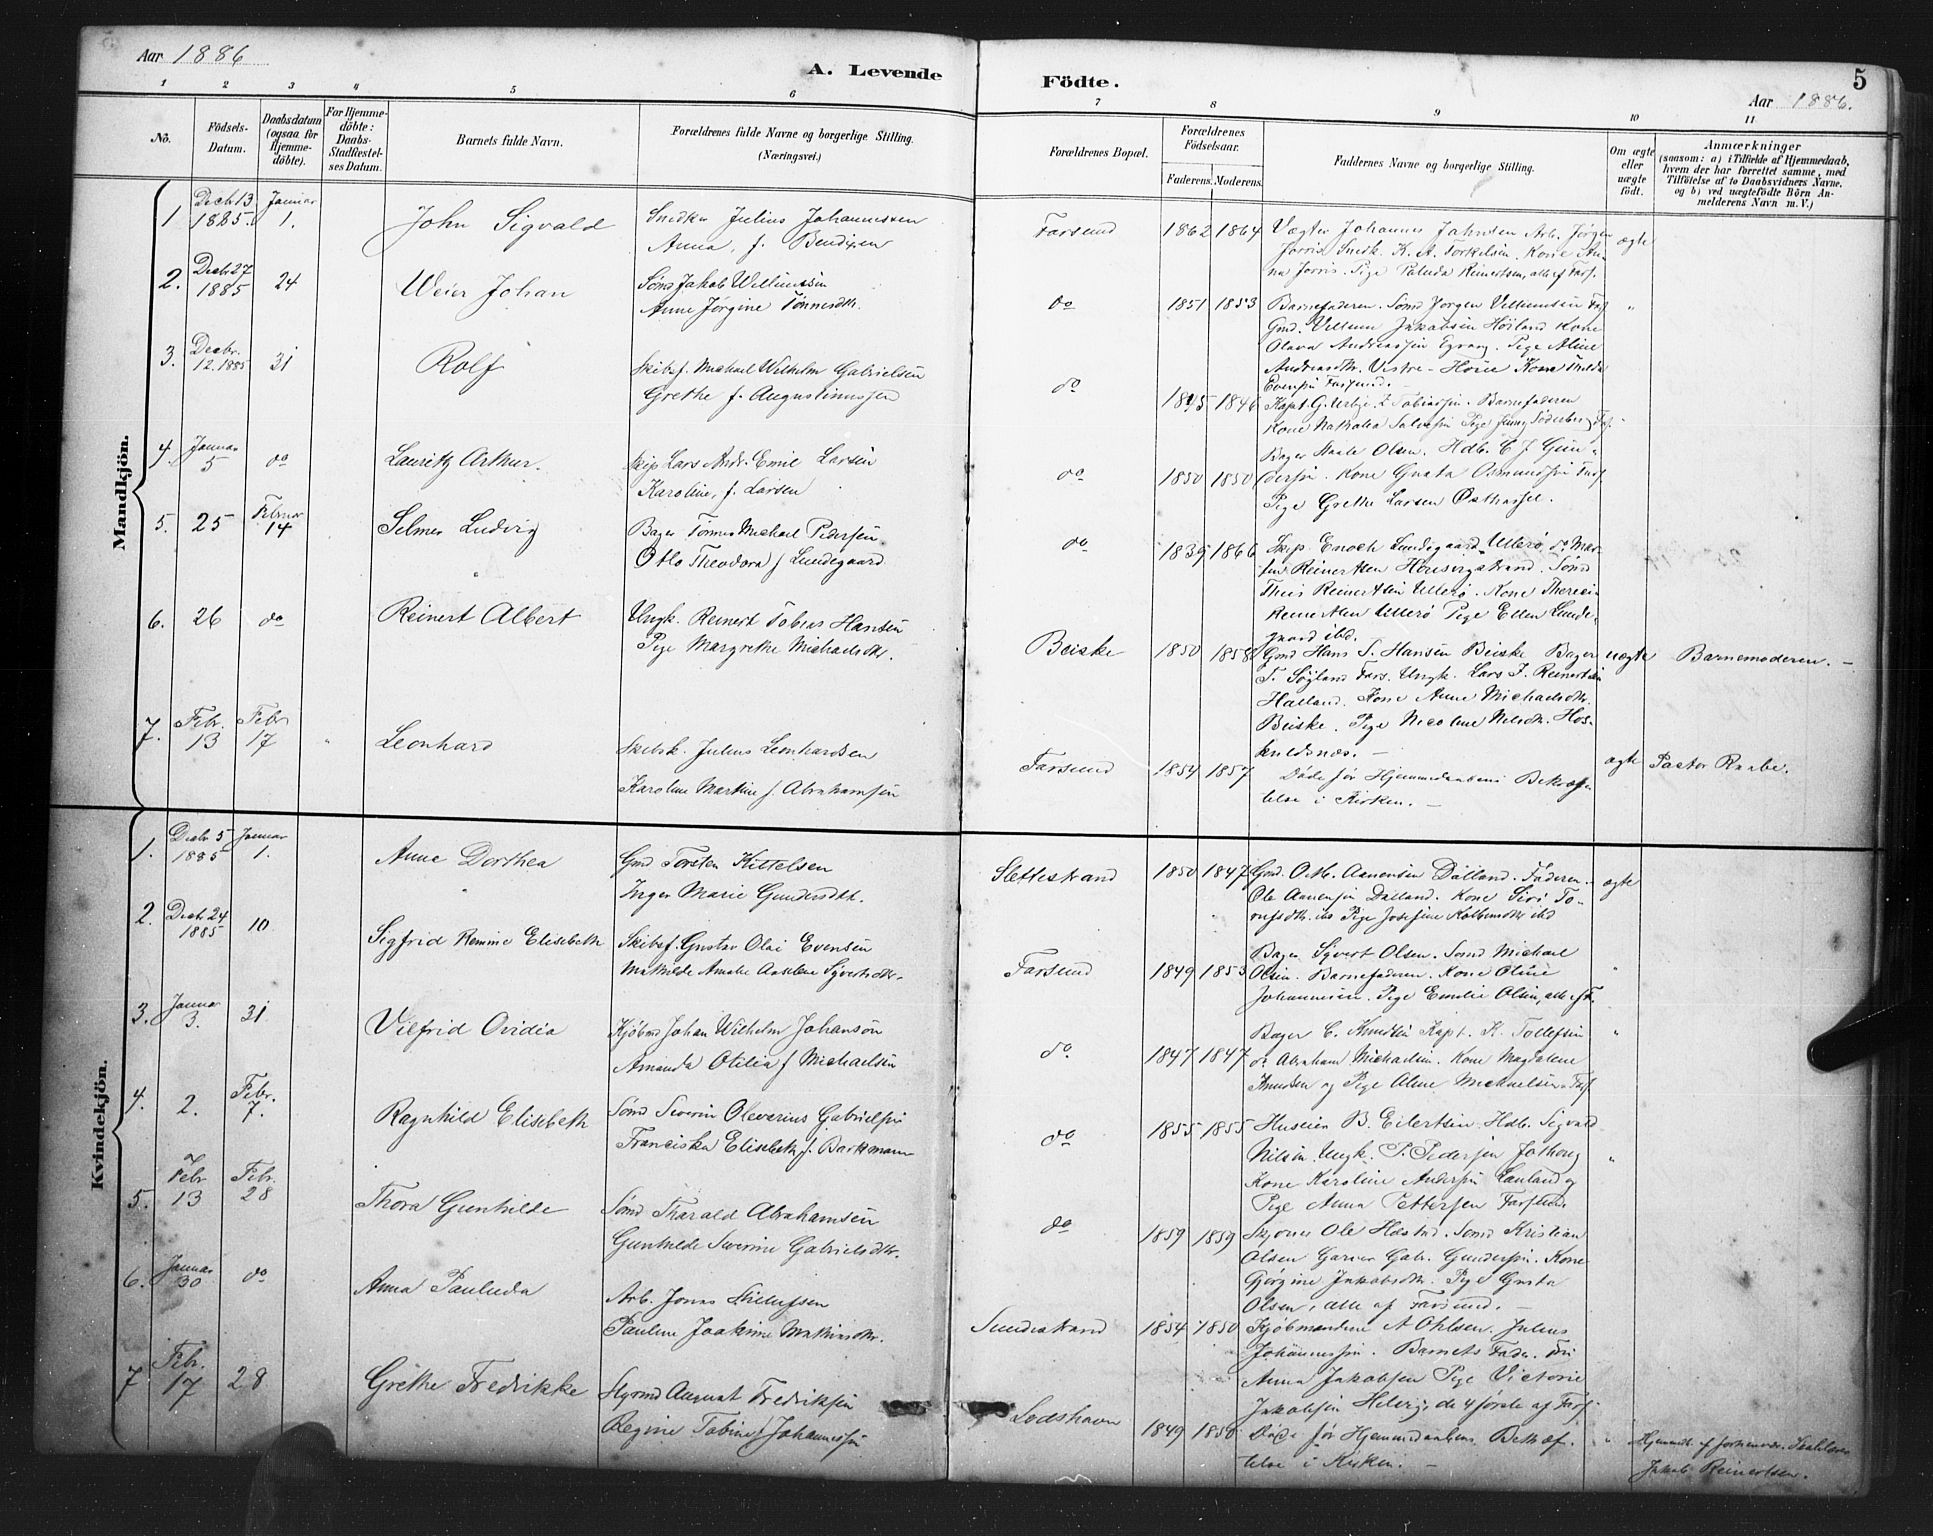 Aar 1886
A. Levende
Födte.
5
Aar 1886.
1 2 3 4 5 6 7 8 9 10 11
No.
Födsels-Datum.
Daabsdatum (ogsaa for Hjemmedöbte).
For Hjemmedöbte: Daabs-Stadfæstelses Datum.
Barnets fulde Navn.
Forældrenes fulde Navne og borgerlige Stilling. (Næringsvei.)
Forældrenes Bopæl.
Forældrenes Födselsaar.
Faderens. Moderens.
Faddernes Navne og borgerlige Stilling.
Om ægte eller uægte födt.
Anmærkninger (saasom: a) i Tilfælde af Hjemmedaab, hvem der har forrettet samme, med Tilföielse af to Daabsvidners Navne. og b) ved uægtefödte Börn Anmelderens Navn m. V.)
Mandkjön.
1 Decbr 13 1885. Januar 1. John Sigvald
Snedker Julius Johannessen
Anna, f. Bendixen
Farsund 1862 1864
Vægter Johannes Jahnsen Arb. Jørgen
Jorris Snedk. K. A. Torkelsen, Kone An-
na Jorris. Pige Paluda Reinertsen, alle af Fars.
ægte
2. Decbr 27 1885 24 Weier Johan
Sømd Jakob Willumsen
Anne Jørgine Tønnesdtr.
do 1851 1853
Barnefaderen. Sømd Jørgen Villumsen Fars
Gmd. Villum Jakobsen Høiland Kone
Olava Andreassen Egvaag. Pige Aline
Andreasdtr. Vestre-
Evensen Farsund. -
"
3. Decbr. 12. 1885 31 Rolf
Skibsf. Michael Wilhelm Gabrielsen
Grethe f. Augustinussen
do 1845 1846
Kapt. G. Tobiassen. Barnefaderen
Kone Nathalia Salvesen Pige Jenny Söderberg Fars.
4. Januar 5 do Lauritz Arthur.
Skip Lars Andr. Emil Larsen
Karoline, f. Larsen
do 1850 1850
Bager Staale Olsen. Hdb. C J Gun-
dersen. Kone Gusta Osmundsen Fars.
Pige Grethe Larsen Østhassel.
5. 25 Februar 14 Selmer Ludvig
Bager Tønnes Michael Pedersen
Otto Theodora f Lundegaard
do 1839 1866
Skip. Enoch Lundegaard Ullerø do Mar-
tin Reinertsen . Sømd
Theis Reinertsen Ullerø. Kone Therese
Reinertsen Ullerø Pige Ellen Lunde-
gaard ibd.
6. 26 do Reinert Albert
Ungk. Reinert Tobias Hansen
Pige Margrethe Michaelsdtr.
Beiske 1850 1858
Gmd Hans S. Hansen Beiske Bager
T. Søyland Fars. Ungk. Lars J. Reinertsen
Haaland. Kone Anne Michaelsdtr.
Beiske. Pige Nicoline Nilsdtr. Hos-
kuldsnæs. -
uægte
Barnemoderen. -
7. Febr. 13 Febr 17 " Leonhard
Skibsk. Julius Leonhardsen
Karoline Martine f. Abrahamsen
Farsund 1854 1857
Døde før Hjemmedaabens Bekræf-
telse i Kirken. -
ægte
Pastor Raabe.
Kvindekjön.
1. Decbr 5 1885 Januar 1. Anne Dorthea
Gmd Torsten Kittelsen
Inger Marie Gundersdtr.
Slettestrand 1850 1847
Gmd. O. M. Aanensen Dalland. Faderen.
Ole Aanensen Dalland. Kone Siri To-
ibd Pige Josefine Kolbensdtr ibd
ægte
2. Decbr 24 1885 10 Sigfrid Remine Elisebeth
Skibsf. Gustav Olai Evensen
Mathilde Amalie Aaselene Syvertsdtr.
Farsund 1849 1853
Bager Syvert Olsen. Sømd Michael
Olsen. Barnefaderen. Kone Oline
Johannesen. Pige Emilie Olsen, alle af F.
"
3. Januar 3. 31 Vilfrid Ovidia
Kjøbmd Johan Wilhelm Johanson
Amanda Otilia f Michaelsen
do. 1847 1847
Bager C. Knudsen Kapt. K. Tollefsen
do Abraham Michaelsen. Kone Magdalene
Knudsen og Pige Aline Michaelsen. Fars.
"
4. 2. Febr. 7. Ragnhild Elisebeth
Sømd Severin Olevarius Gabrielsen
Franciska Elisebeth f. Bartmann
do 1855 1855
Huseier B. Eilertsen. Hdb. Sigvald
Nilsen. Ungk. P. Pedersen
Kone Karoline Andersen Lanland og
Pige Anna Pettersen Farsund.
"
5. Febr 13 Febr. 28 Thora Gunhilde
Sømd Tharald Abrahamsen
Gunhilde Severine Gabrielsdtr.
do 1859 1859
Ole Hastad. Sømd Kristian
Olsen Garver Gab. Gundersen. Kone
Gjørgine Jakobsdtr. Pige Gusta
Olsen, alle af Farsund. -
6. Januar 30 do Anna Pauluda
Arb. Jonas
Pauline Joakime Mathiasdtr.
Sundestrand 1854 1850
Kjøbmændene A Ohlsen. Julius
Johannessen. Barnets Fader. Fru
Anna Jakobsen Pige Victorie
Jakobsen Helvig, de 4 første af Fars.
7 Febr. 17 28 Grethe Fredrikke
Styrmd August Fredriksen
Regine Tobine f Johannessen
Lodshavn 1849 1850
Døde før Hjemmedaabens Bekræf-
telse i Kirken. -
"
Hjemmed. af Jordemoder
Jakob Reinertsen.